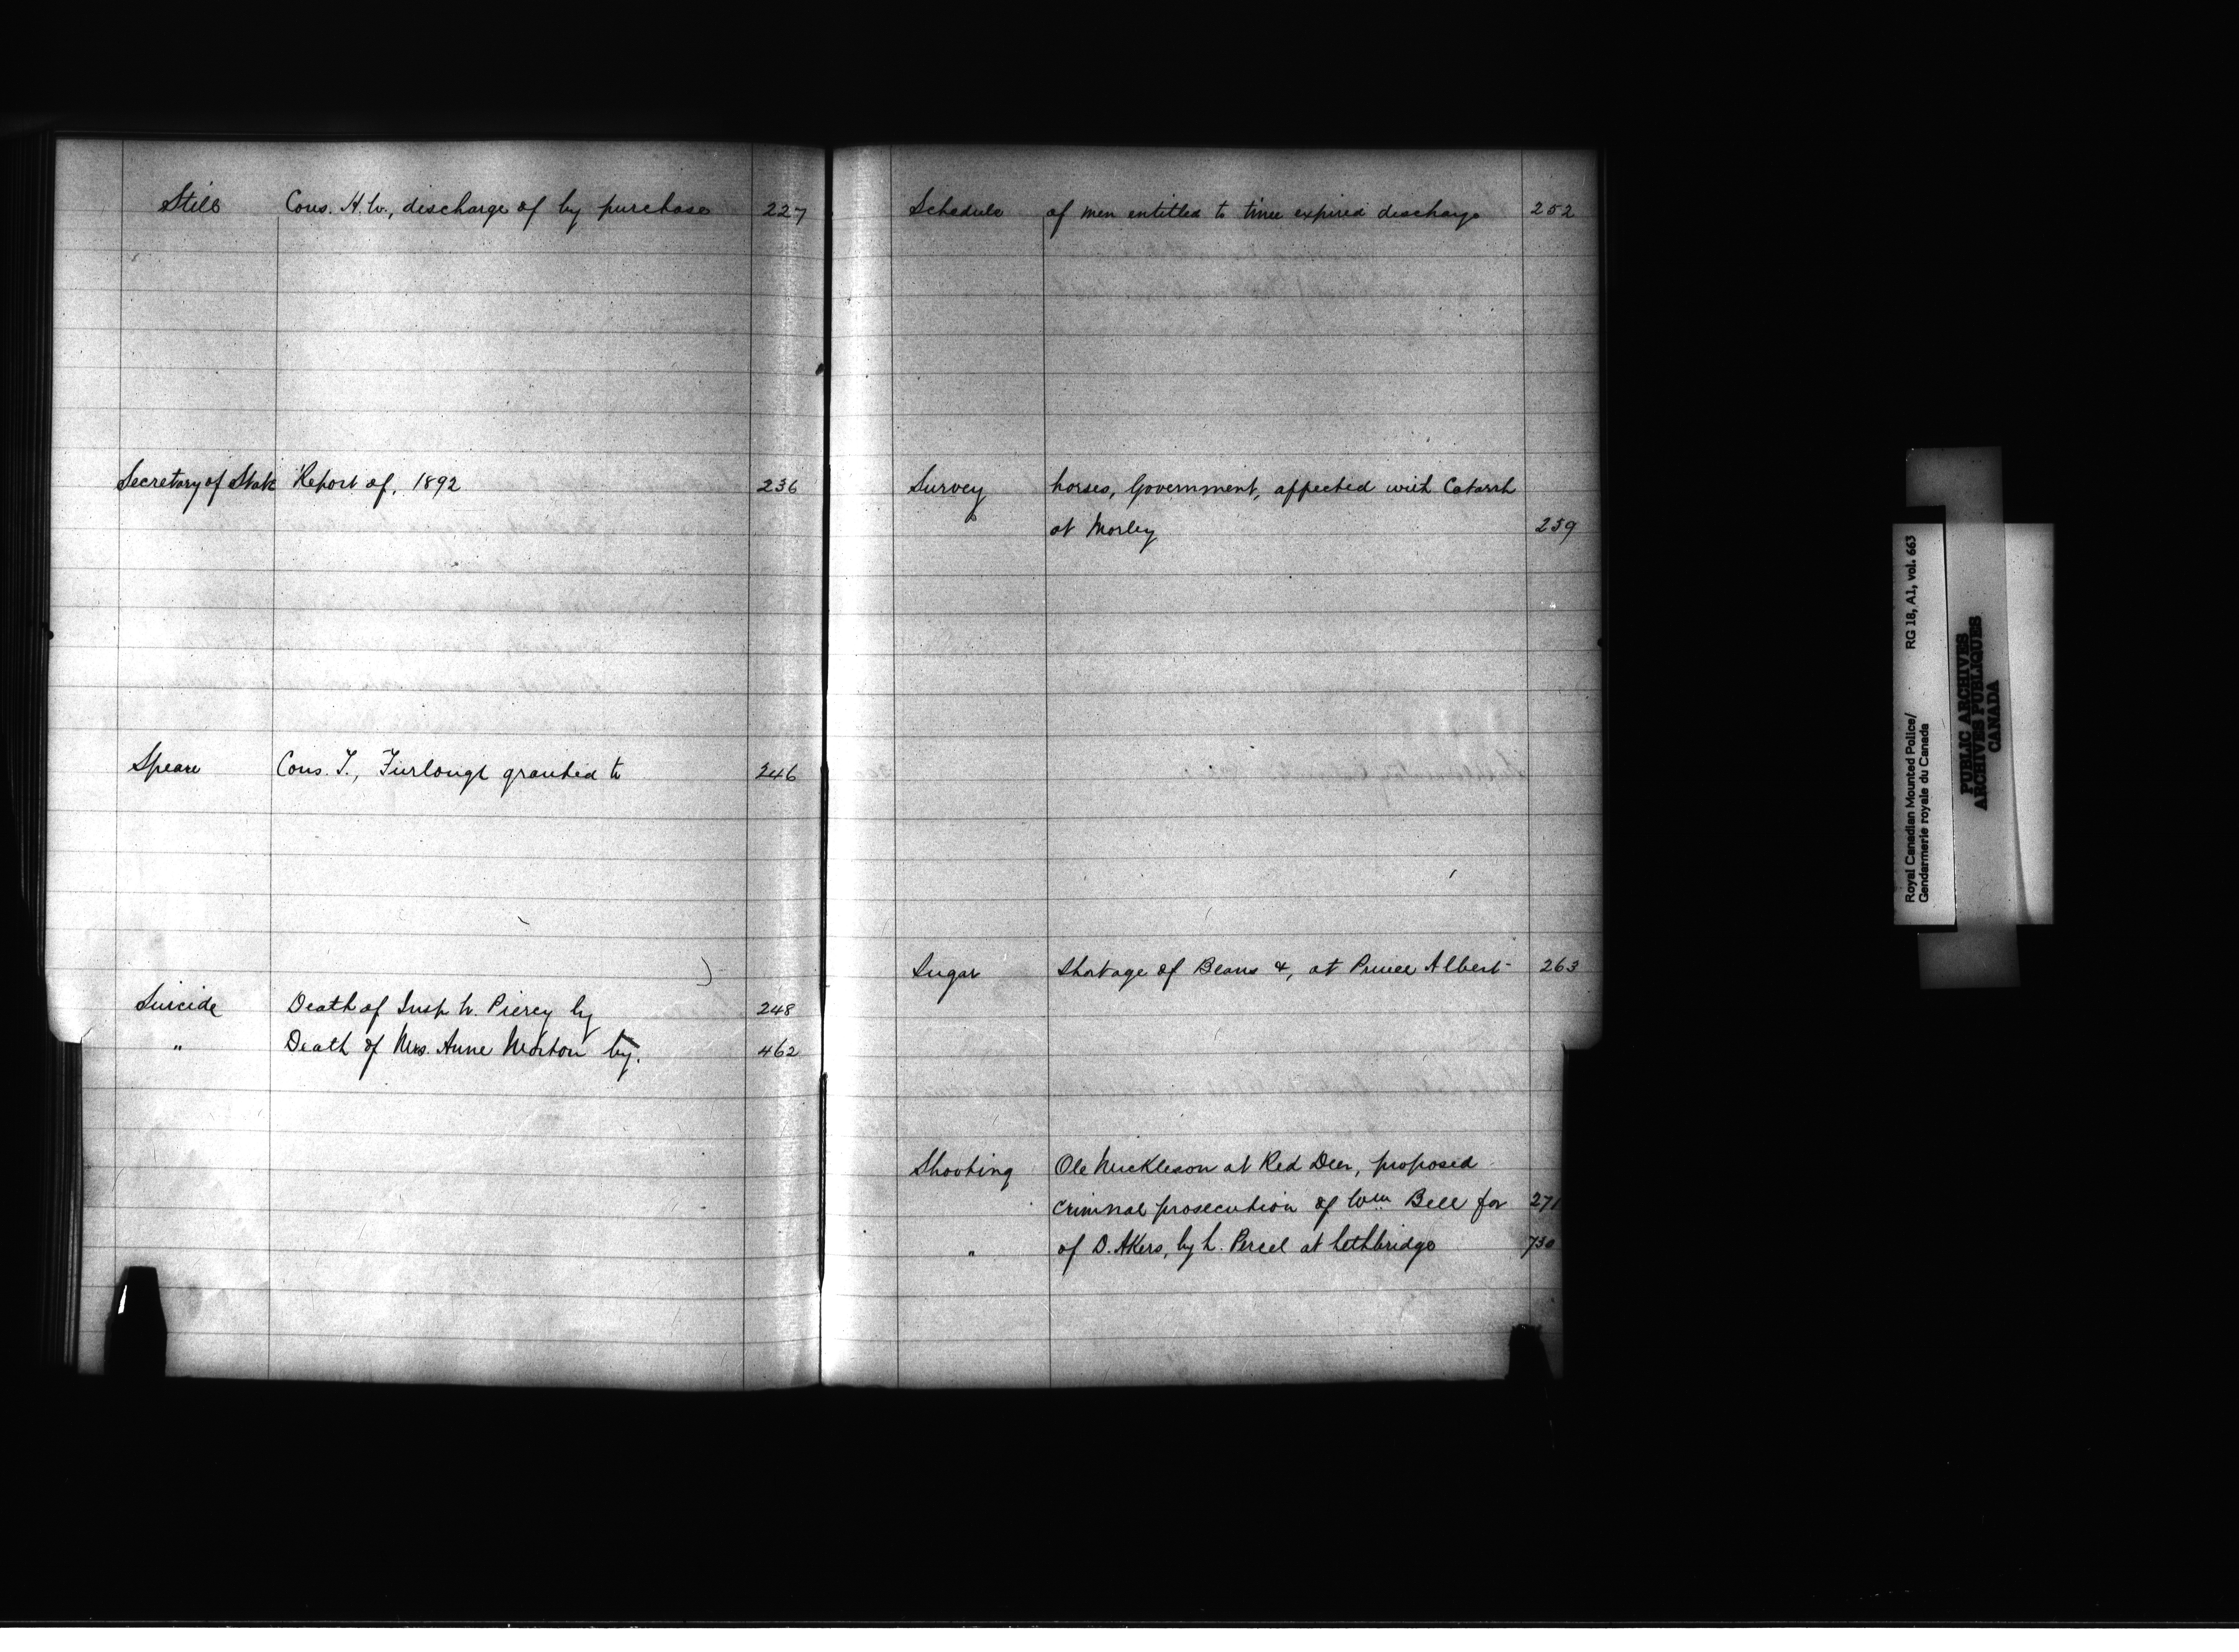 Still Cons. H.W., discharge of by purchase 227
Secretary of State Report of, 1892 236
Speare Cons. T., Furlough granted to 246
Suicide Death of Insp W. Piercy by 248
" Death of Mrs. Anne Morton by. 462
Schedule of men entitled to time expired discharge 252
Survey horses, Government, affected with Catarrh
at Morley 259
Sugar Shortage of Beans &, at Prince Albert 263
Shooting Ole Mickleson at Red Deer, proposed
criminal prosecution of Wm Bell for 271
" of D. Akers, by L. Percel at Lethbridge 730
Royal Canadian Mounted Police/ RG 18, A1, vol. 663
Gendarmerie royale du Canada
PUBLIC ARCHIVES
ARCHIVES PUBLIQUES
CANADA